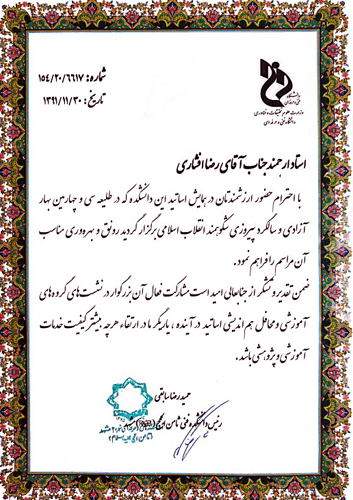 شماره: ۱۵۴/۲۰/۶۶۱۷
تاریخ: ۱۳۹۱/۱۱/۳۰
دانشگاه
فنی و حرفه‌ای
وزارت علوم، تحقیقات و فناوری
دانشگاه فنی و حرفه‌ای
استاد ارجمند جناب آقای رضا افشاری
با احترام حضور ارزشمندتان در همایش اساتید این دانشکده که در طلیعه سی و چهارمین بهار
آزادی و سالگرد پیروزی شکوهمند انقلاب اسلامی برگزار گردید رونق و بهروری مناسب
آن مراسم را فراهم نمود.
ضمن تقدیر و تشکر از جنابعالی امید است مشارکت فعال آن بزرگوار در نشست‌های گروه‌های
آموزشی و محافل هم اندیشی اساتید در آینده، یاریگر ما در ارتقاء هرچه بیشتر کیفیت خدمات
آموزشی و پژوهشی باشد.
حمیدرضا سابقی
رئیس دانشکده فنی ثامن الحجج (ع) مشهد